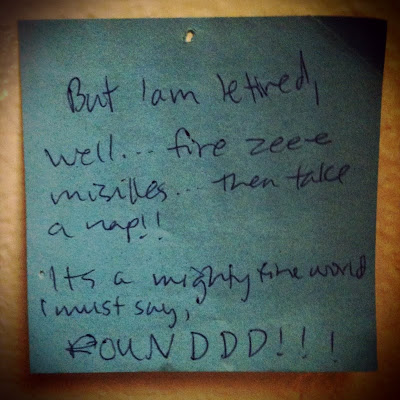 But I am le tired,
well... fire zeee
misilles... then take
a nap!!
Its a mighty fine world
I must say,
ROUNDDD!!!